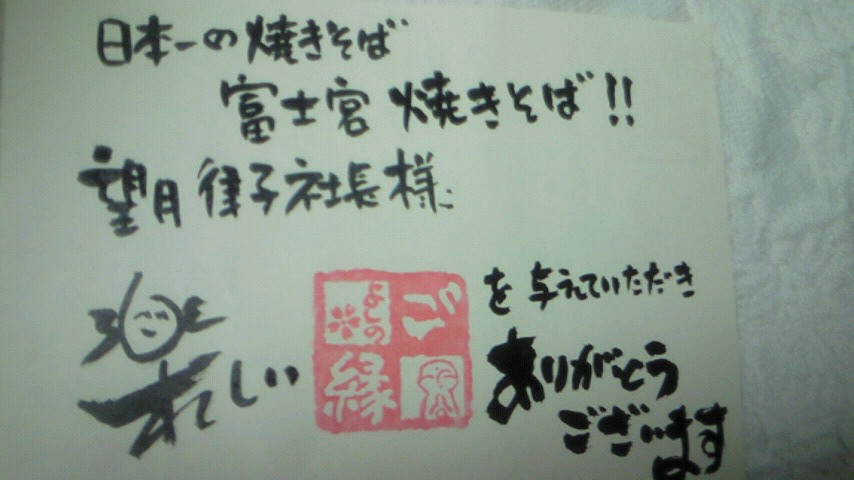 日本一の焼きそば
富士宮焼きそば!!
望月律子社長様
楽しい
よしの
ご縁
を与えていただき
ありがとう
ございます